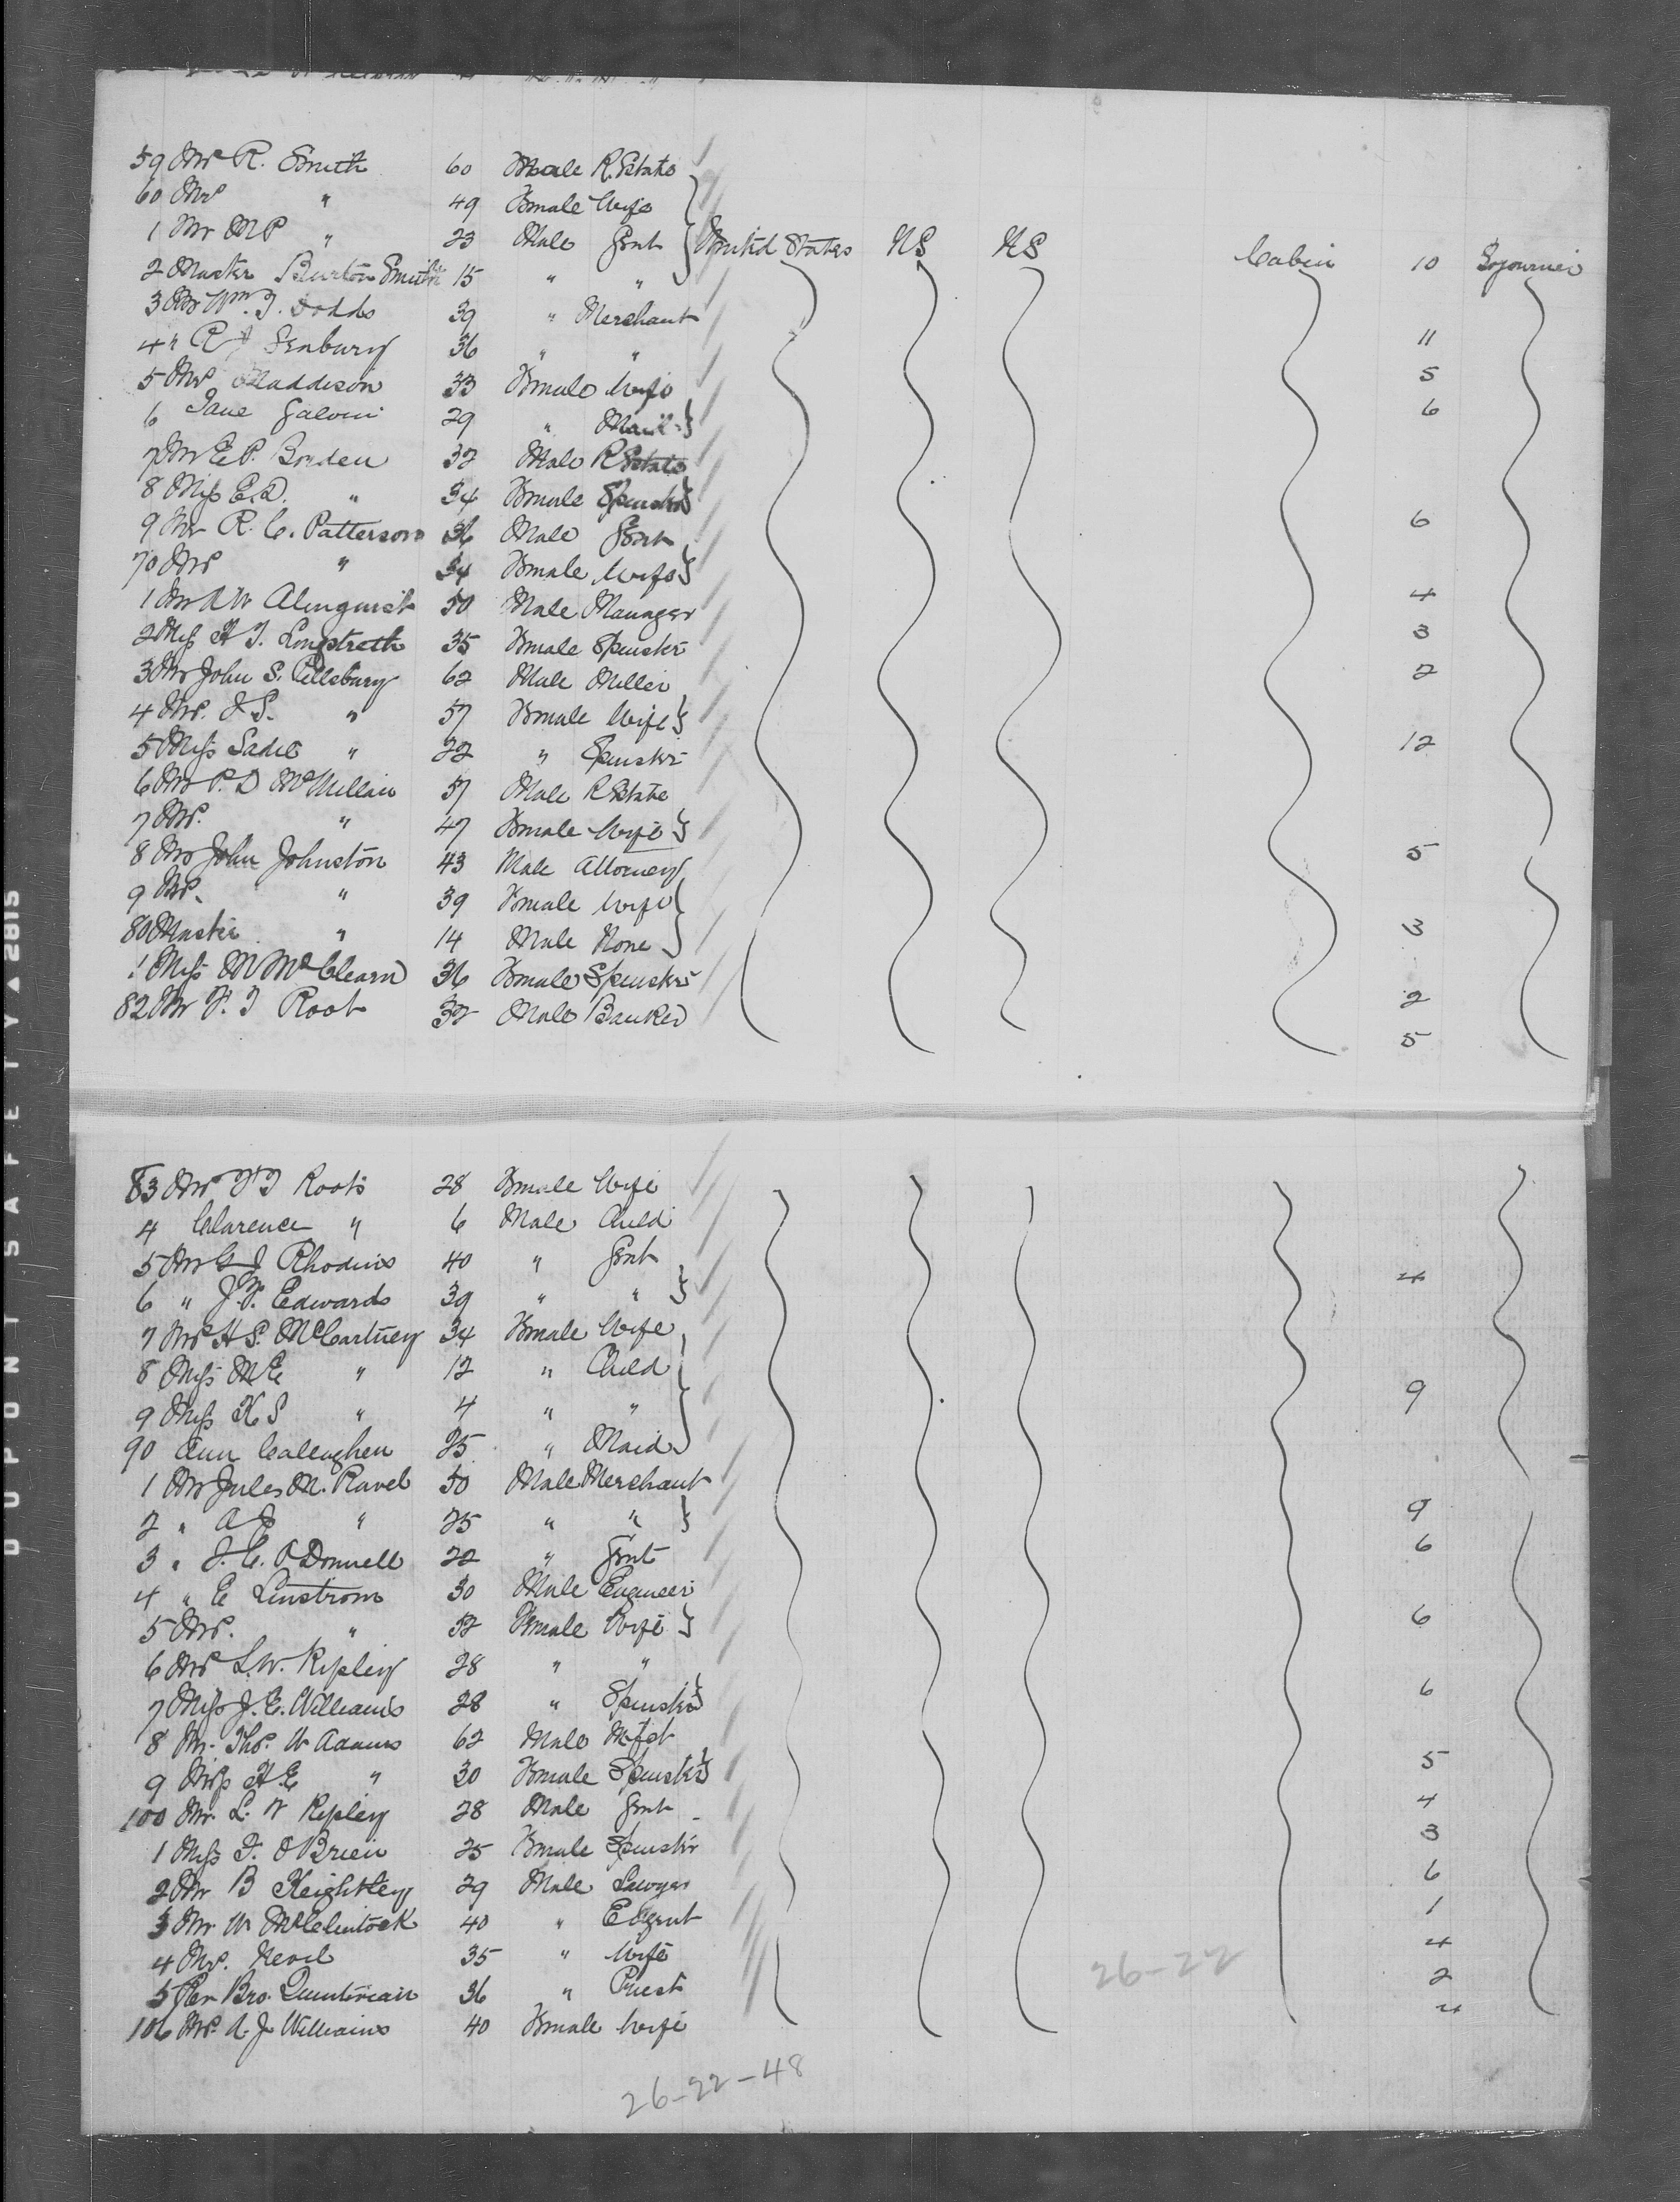 59 Mr R. Smith 60 Male R. Estate
60 Mrs " 49 Female Wife
1 Mr M P " 23 Male Gent United States US US Cabin 10 Sojourner
2 Master Burton Smith 15 " "
3 Mr Wm. T. Dodds 39 " Merchant
4 " R Senbury 36 " " 11
5 Mrs Maddison 33 Female Wife 5
6 Jane Galvin 29 " Maid 6
7 Mr E P. Borden 32 Male R Estate
8 Miss E. D. " 34 Female Spinster
9 Mr R. C. Patterson 36 Male Gent 6
70 Mrs " 34 Female Wife
1 Mr A W Almquist 50 Male Manager 4
2 Miss H T. Longstreth 35 Female Spinster 3
3 Mr John S. Pillsbury 62 Male Miller 2
4 Mrs. J. S. " 57 Female Wife
5 Miss Sadie " 22 " Spinster 12
6 Mr P. D McMillan 57 Male R Estate
7 Mrs. " 47 Female Wife
8 Mr John Johnston 43 Male Attorney 5
9 Mrs. " 39 Female Wife
80 Master " 14 Male None 3
1 Miss M McClearn 36 Female Spinster
82 Mr F. T Root 32 Male Banker 2
5
83 Mrs F T Roots 28 Female Wife
4 Clarence " 6 Male Child
5 Mr G J Rhodius 40 " Gent
6 " J. F. Edwards 39 " " 4
7 Mrs H S. McCartney 34 Female Wife
8 Miss M E " 12 " Child
9 Miss K S " 4 " " 9
90 Ann Callaghen 25 " Maid
1 Mr Jules M. Ravel 50 Male Merchant
2 " A J " 25 " " 9
3 " J. C. O'Donnell 22 " Gent 6
4 " E Linstrom 30 Male Engineer
5 Mrs. " 32 Female Wife 6
6 Mrs L. W. Ripley 28 " "
7 Miss J. E. Williams 28 " Spinster 6
8 Mr. Thos. W Adams 62 Male Mfct
9 Miss H. E " 30 Female Spinster 5
100 Mr. L. W Ripley 28 Male Gent 4
1 Miss T. O'Brien 25 Female Spinster 3
2 Mr B Keightley 29 Male Lawyer 6
3 Mr W McClintock 40 " 1
4 Mrs. 35 " Wife 4
5 Rev Bro. Quintinian 36 " Priest 26-22 2
106 Mrs. A. J Williams 40 Female Wife 4
26-22-48
DUPONT SAFETY ▲ 281S